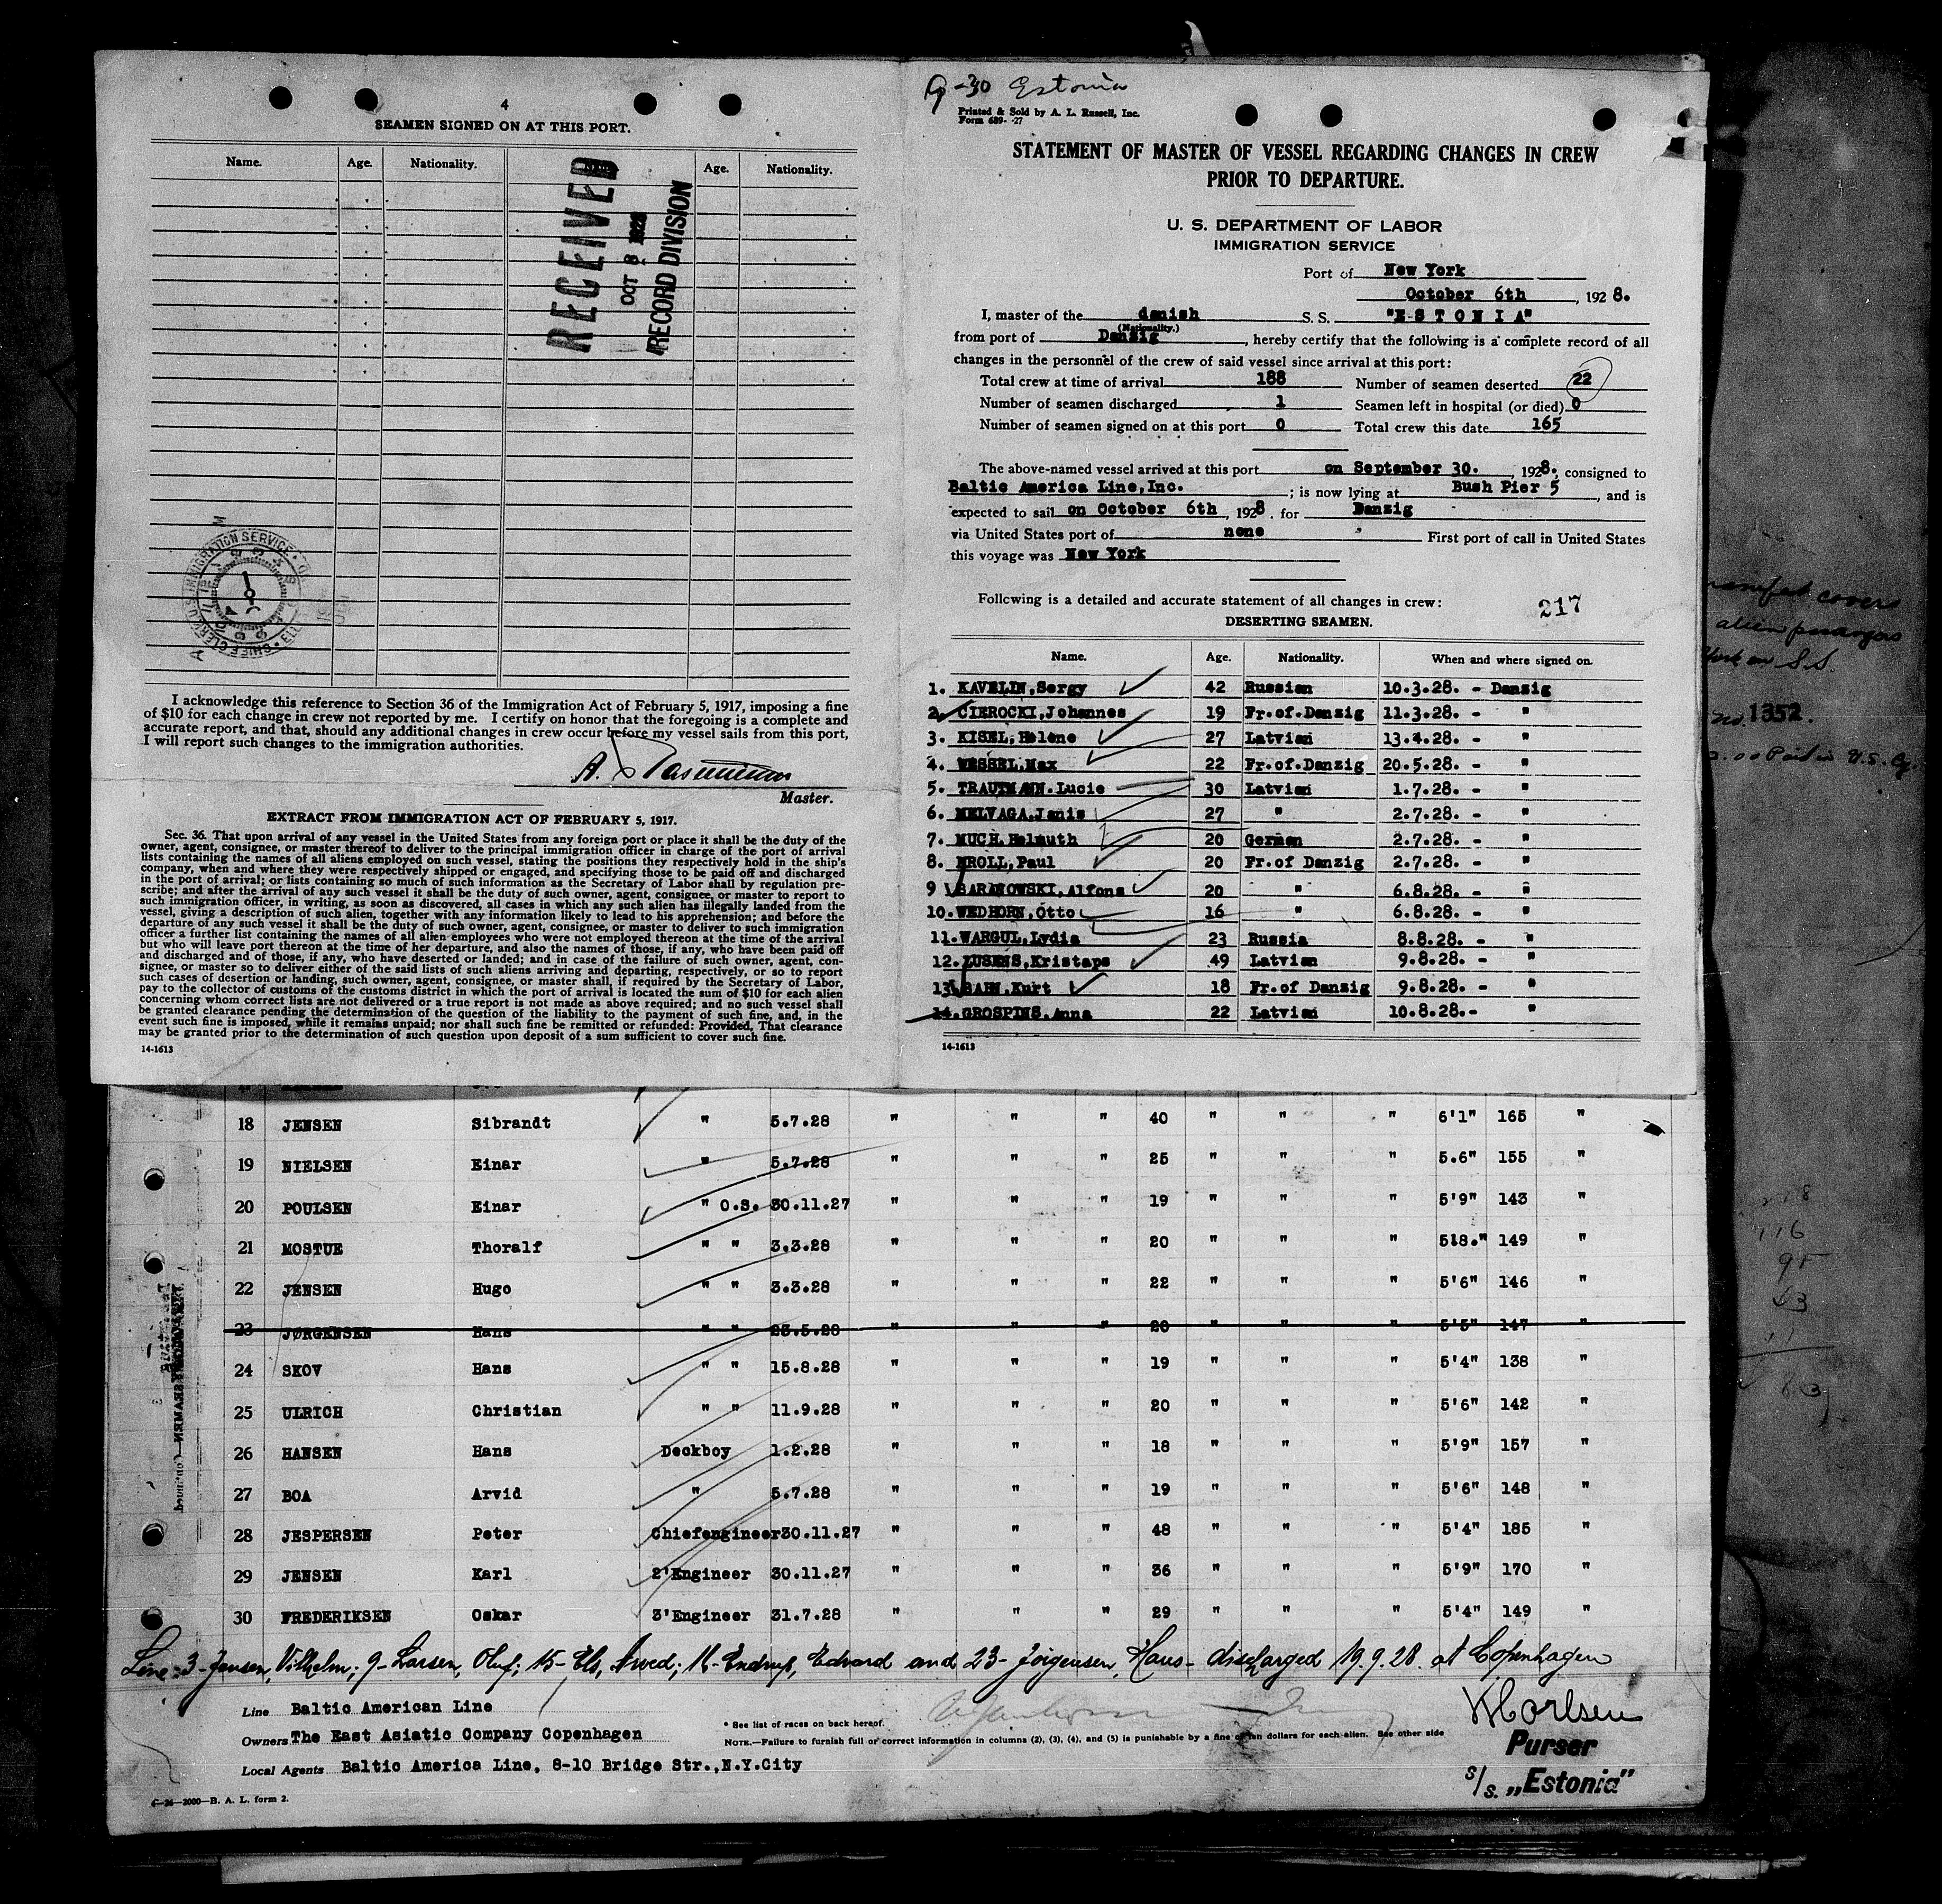 4
SEAMEN SIGNED ON AT THIS PORT.
Name. Age. Nationality. Age. Nationality.
RECEIVED
OCT 8 1928
RECORD DIVISION
I acknowledge this reference to Section 36 of the Immigration Act of February 5, 1917, imposing a fine
of $10 for each change in crew not reported by me. I certify on honor that the foregoing is a complete and
accurate report, and that, should any additional changes in crew occur before my vessel sails from this port,
I will report such changes to the immigration authorities.
Master.
EXTRACT FROM IMMIGRATION ACT OF FEBRUARY 5, 1917.
Sec. 36. That upon arrival of any vessel in the United States from any foreign port or place it shall be the duty of the
owner, agent, consignee, or master thereof to deliver to the principal immigration officer in charge of the port of arrival
lists containing the names of all aliens employed on such vessel, stating the positions they respectively hold in the ship's
company, when and where they were respectively shipped or engaged, and specifying those to be paid off and discharged
in the port of arrival; or lists containing so much of such information as the Secretary of Labor shall by regulation pre-
scribe; and after the arrival of any such vessel it shall be the duty of such owner, agent, consignee, or master to report to
such immigration officer, in writing, as soon as discovered, all cases in which any such alien has illegally landed from the
vessel, giving a description of such alien, together with any information likely to lead to his apprehension; and before the
departure of any such vessel it shall be the duty of such owner, agent, consignee, or master to deliver to such immigration
officer a further list containing the names of all alien employees who were not employed thereon at the time of the arrival
but who will leave port thereon at the time of her departure, and also the names of those, if any, who have been paid off
and discharged and of those, if any, who have deserted or landed; and in case of the failure of such owner, agent, con-
signee, or master so to deliver either of the said lists of such aliens arriving and departing, respectively, or so to report
such cases of desertion or landing, such owner, agent, consignee, or master shall, if required by the Secretary of Labor,
pay to the collector of customs of the customs district in which the port of arrival is located the sum of $10 for each alien
concerning whom correct lists are not delivered or a true report is not made as above required; and no such vessel shall
be granted clearance pending the determination of the question of the liability to the payment of such fine, and, in the
event such fine is imposed, while it remains unpaid; nor shall such fine be remitted or refunded: Provided, That clearance
may be granted prior to the determination of such question upon deposit of a sum sufficient to cover such fine.
14-1613
-30 Estonia
Printed & Sold by A. L. Russell, Inc.
Form 689- -27
STATEMENT OF MASTER OF VESSEL REGARDING CHANGES IN CREW
PRIOR TO DEPARTURE.
U. S. DEPARTMENT OF LABOR
IMMIGRATION SERVICE
Port of New York
October 6th, 1928.
I, master of the danish S. S. "E S T O N I A"
(Nationality.)
from port of Danzig, hereby certify that the following is a complete record of all
changes in the personnel of the crew of said vessel since arrival at this port:
Total crew at time of arrival 188 Number of seamen deserted 22
Number of seamen discharged 1 Seamen left in hospital (or died) 0
Number of seamen signed on at this port 0 Total crew this date 165
The above-named vessel arrived at this port on September 30., 1928., consigned to
Baltic America Line,Inc.; is now lying at Bush Pier 5, and is
expected to sail on October 6th, 1928. for Danzig
via United States port of none First port of call in United States
this voyage was New York
Following is a detailed and accurate statement of all changes in crew: 217
DESERTING SEAMEN.
Name. Age. Nationality. When and where signed on.
1. KAVELIN,Sergy 42 Russian 10.3.28. - Danzig
2. CIEROCKI,Johannes 19 Fr.of.Danzig 11.3.28. - "
3. KISEL,Helene 27 Latvian 13.4.28. - "
4. WESSEL,Max 22 Fr.of.Danzig 20.5.28. - "
5. TRAUTMANN.Lucie 30 Latvian 1.7.28. - "
6. MELVAGA,Janis 27 " 2.7.28. - "
7. MUCH.Helmuth 20 German 2.7.28. - "
8. KROLL,Paul 20 Fr.of Danzig 2.7.28. - "
9 BARANOWSKI,Alfons 20 " 6.8.28. - "
10. WEDHORN,Otto 16 " 6.8.28. - "
11. WARGUL,Lydia 23 Russia 8.8.28. - "
12. LUSENS,Kristaps 49 Latvian 9.8.28. - "
13 BAHN,Kurt 18 Fr.of Danzig 9.8.28. - "
14. GROSPINS,Anna 22 Latvian 10.8.28.- "
14-1613
18 JENSEN Sibrandt " 5.7.28 " " " 40 " " " 6'1" 165 "
19 NIELSEN Einar " 5.7.28 " " " 25 " " " 5.6" 155 "
20 POULSEN Einar " O.S. 30.11.27 " " " 19 " " " 5'9" 143 "
21 MOSTUE Thoralf " " 3.3.28 " " " 20 " " " 5'8." 149 "
22 JENSEN Hugo " " 3.3.28 " " " 22 " " " 5'6" 146 "
23 JØRGENSEN Hans " " 23.5.28 " " " 20 " 5'5" 147 "
24 SKOV Hans " " 15.8.28 " " " 19 " " " 5'4" 138 "
25 ULRICH Christian " " 11.9.28 " " " 20 " " " 5'6" 142 "
26 HANSEN Hans Deckboy 1.2.28 " " " 18 " " " 5'9" 157 "
27 BOA Arvid " 5.7.28 " " " 19 " " " 5'6" 148 "
28 JESPERSEN Peter Chiefengineer 30.11.27 " " " 48 " " " 5'4" 185 "
29 JENSEN Karl 2'Engineer 30.11.27 " " " 36 " " " 5'9" 170 "
30 FREDERIKSEN Oskar 3'Engineer 31.7.28 " " " 29 " " " 5'4" 149 "
Line: 3- Jensen, Vilhelm; 9- Larsen, Oluf; 15- Els, ; 16- Endrup, Edvard and 23- Jørgensen, Hans- discharged 19.9.28 at Copenhagen
Line Baltic American Line
Owners The East Asiatic Company Copenhagen
Local Agents Baltic America Line, 8-10 Bridge Str.,N.Y.City
* See list of races on back hereof.
NOTE.—Failure to furnish full or correct information in columns (2), (3), (4), and (5) is punishable by a fine of ten dollars for each alien. See other side
6—26—2000—B. A. L. form 2.
KCarlsen
Purser
s/s. „Estonia"
covers
alien passengers
York on S.S.
no. 1352.
Paid in U.S.
116